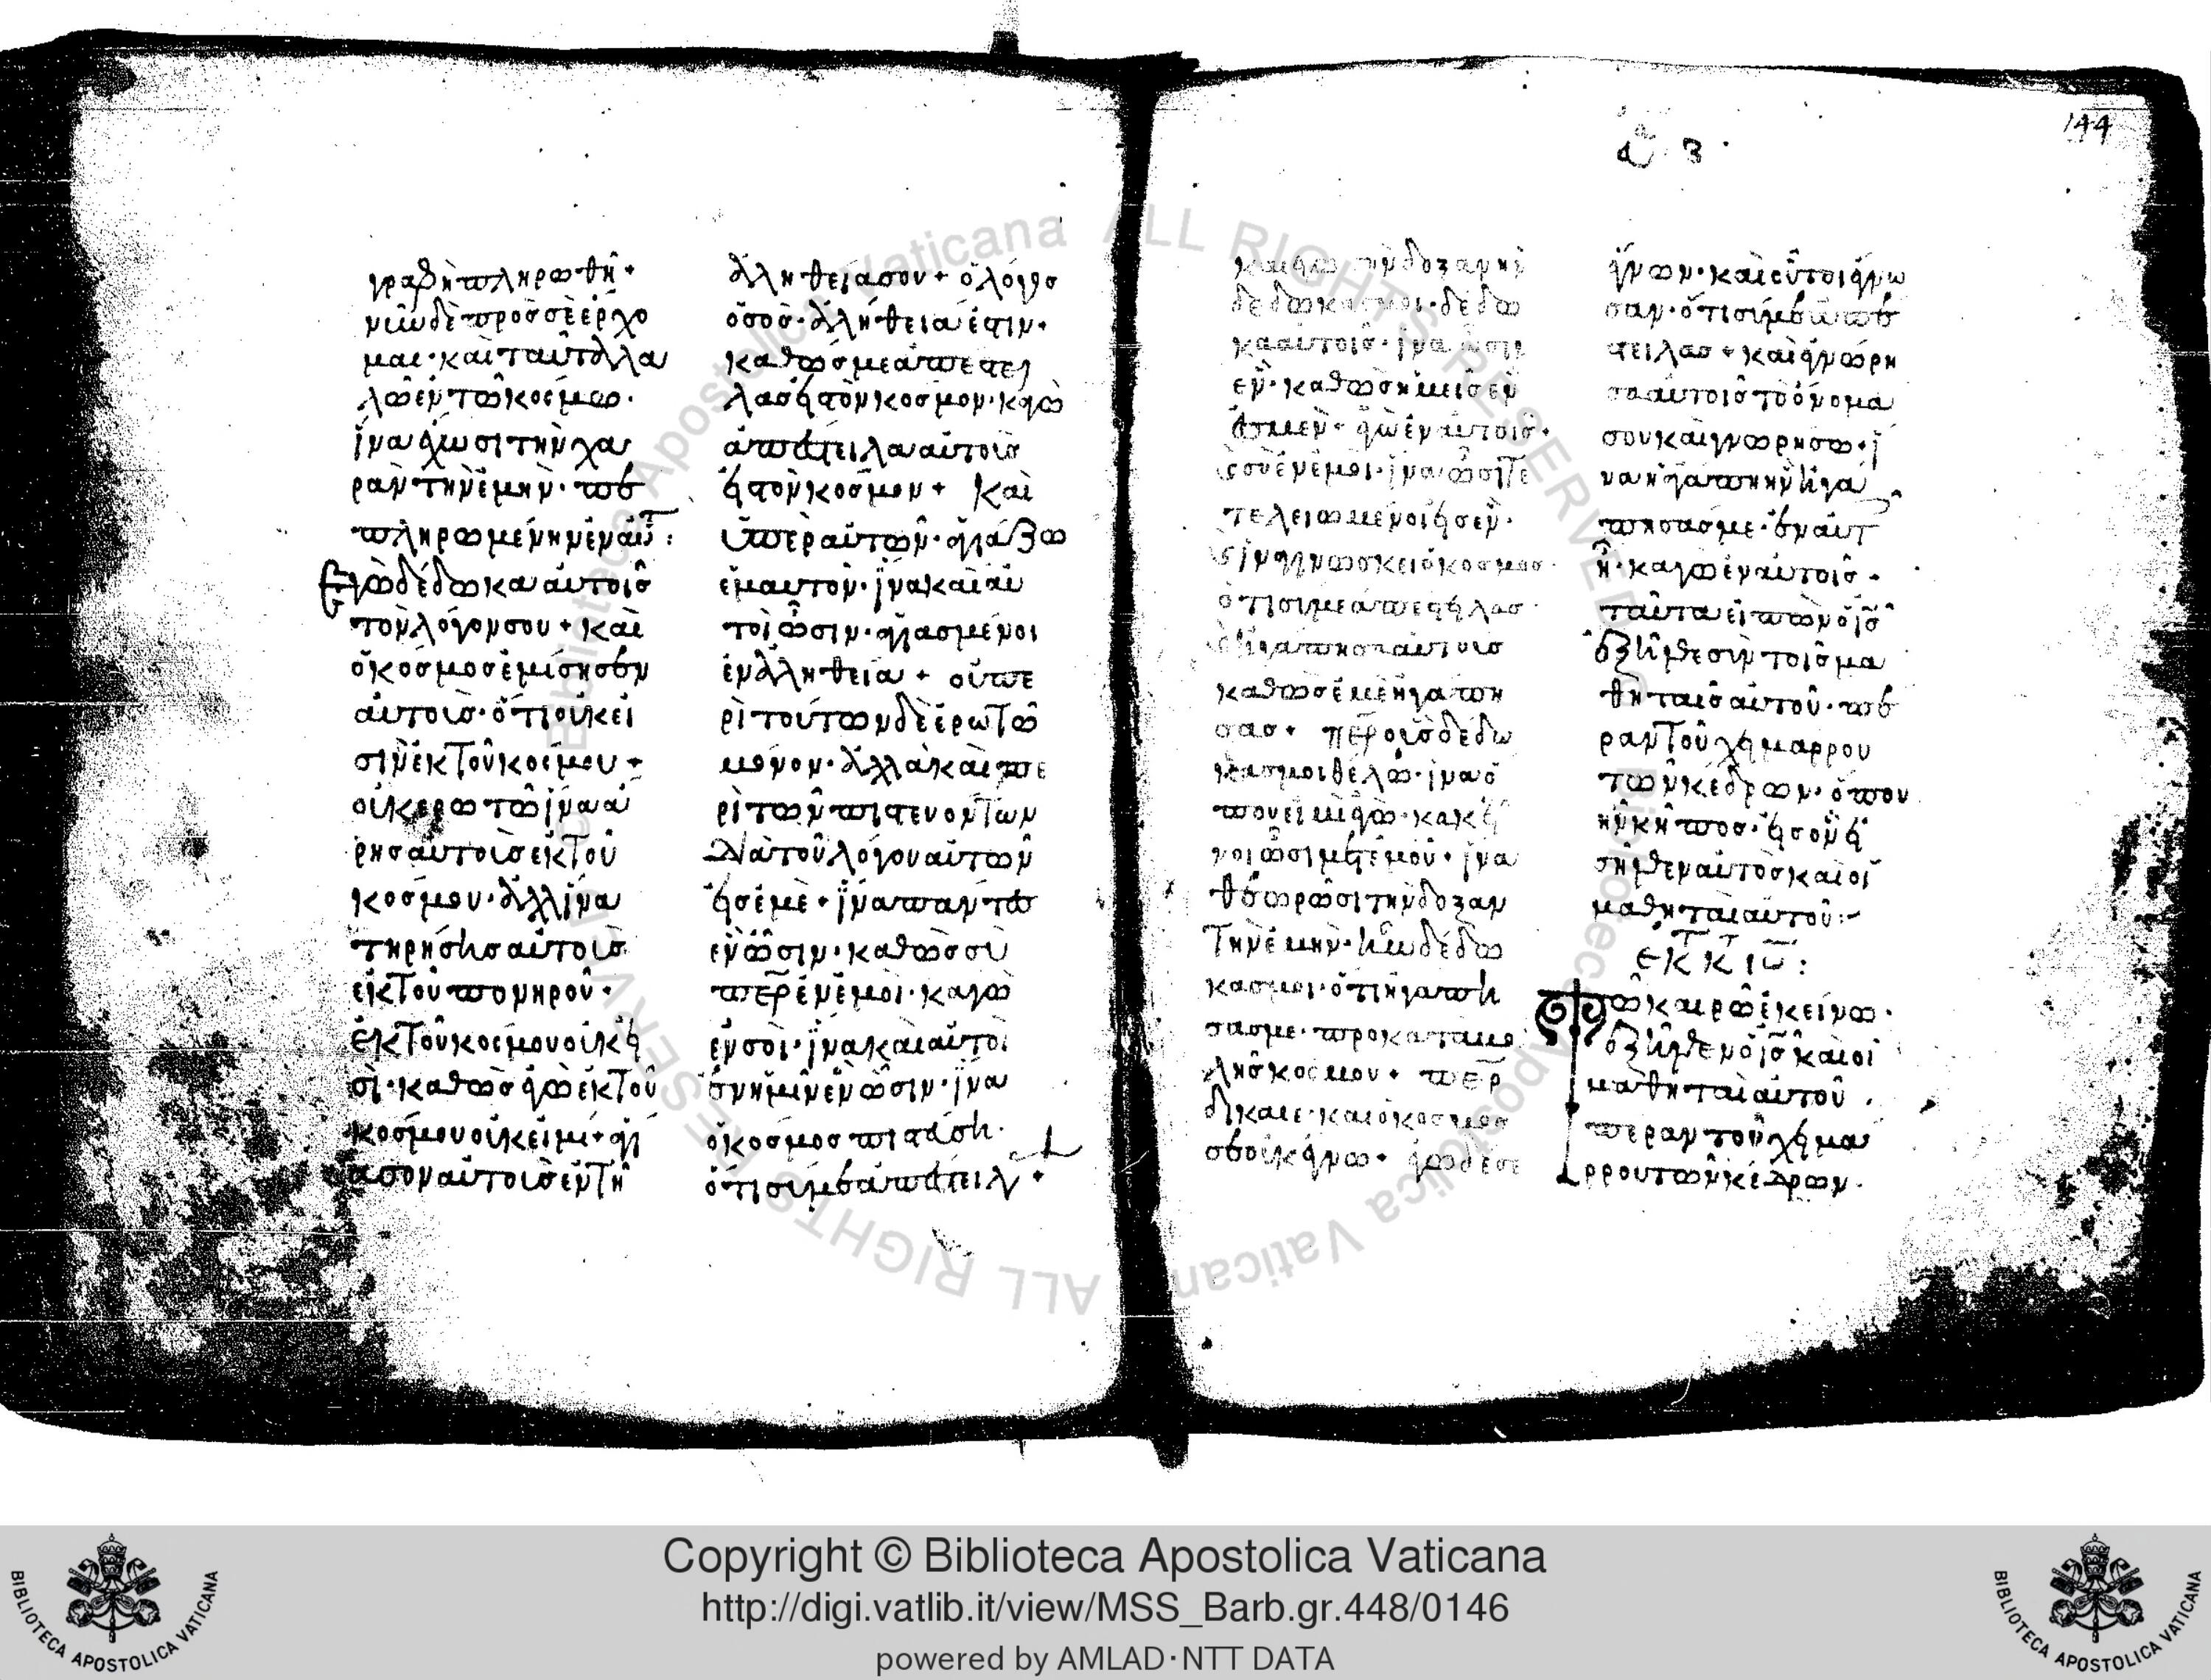 γραφὴ πληρωθῆ+
νῦν δὲ πρὸς σὲ ἔρχο
μαι· καὶ ταῦτα λα
λῶ ἐν τῶ κόσμω·
ἵνα ἔχωσι τὴν χα
ρὰν τὴν ἐμὴν· πε
πληρωμένην ἐν αὐτ:
Ἐγὼ δέδωκα αὐτοῖς
τὸν λόγον σου+ καὶ
ὁ κόσμος ἐμίσησεν
αὐτοὺς· ὅτι οὐκ εἰ
σὶν ἐκ τοῦ κόσμου+
οὐκ ἐρωτῶ ἵνα ἄ
ρης αὐτοὺς ἐκ τοῦ
κόσμου· ἀλλ ἵνα
τηρήσης αὐτοὺς
ἐκ τοῦ πονηροῦ·
ἐκ τοῦ κόσμου οὐκ εἰ
σὶ· καθὼς ἐγὼ ἐκ τοῦ
κόσμου οὐκ εἰμὶ+ ἁγί
ασον αὐτοὺς ἐν τῆ
ἀληθεία σου+ ὁ λόγο
ὁ σὸς· ἀλήθεια ἐστιν·
καθὼς με ἀπέστει
λας εἰς τὸν κόσμον· κἀγὼ
ἀπέστειλα αὐτοὺς
εἰς τὸν κόσμον+ Καὶ
ὑπὲρ αὐτῶν· ἁγιάζω
ἐμαυτὸν· ἵνα καὶ αὐ
τοὶ ὦσιν· ἡγιασμένοι
ἐν ἀληθεία+ οὐ πε
ρὶ τούτων δὲ ἐρωτῶ
μόνον· ἀλλὰ καὶ πε
ρὶ τῶν πιστευόντων
διὰ τοῦ λόγου αὐτῶν
εἰς ἐμὲ+ ἵνα πάντες
ἓν ὦσιν· καθὼς σὺ
περ ἐν ἐμοὶ· κἀγὼ
ἐν σοὶ· ἵνα καὶ αὐτοὶ
ἐν ἡμῖν ἓν ὦσιν· ἵνα
ὁ κόσμος πιστεύση·
ὅτι σύ με ἀπέστειλ+
144
καὶ ἐγὼ τὴν δόξαν ἣν
δέδωκας μοι· δέδω
κα αὐτοῖς· ἵνα ὦσιν
ἓν· καθὼς ἡμεῖς ἓν
ἐσμεν· ἐγὼ ἐν αὐτοῖς·
κ σὺ ἐν ἐμοὶ· ἵνα ὦσι τε
τελειωμένοι εἰς ἓν·
κ ἵνα γινώσκει ὁ κόσμος
ὅτι σύ με ἀπέστειλας·
κ ἠγάπησα αὐτοὺς
καθὼς ἐμὲ ἠγάπη
σας+ περ οὓς δέδω
κας μοι θέλω· ἵνα ὅ
που εἰμὶ ἐγὼ· κἀκεῖ
νοι ὦσι μετ ἐμοῦ· ἵνα
θεωρῶσι τὴν δόξαν
τὴν ἐμὴν· ἣν δέδω
κας μοι· ὅτι ἠγάπη
σας με· πρὸ καταβο
λῆς κόσμου+ περ
δίκαιε· καὶ ὁ κόσμος
σε οὐκ ἔγνω+ ἐγὼ δέ σε
ἔγνων· καὶ οὗτοι ἔγνω
σαν· ὅτι σύ με ἀπέ
στειλας+ καὶ ἐγνώρη
σα αὐτοῖς τὸ ὄνομα
σου καὶ γνωρήσω· ἵ
να ἡ ἀγάπη ἣν ἠγά
πησας με· ἐν αὐτ
ῆ· κἀγὼ ἐν αὐτοῖς·
ταῦτα εἰπὼν ὁ ις
ἐξῆλθε σὺν τοῖς μα
θηταῖς αὐτοῦ· πέ
ραν τοῦ χειμάρρου
τῶν κέδρων· ὅπου
ἦν κῆπος· εἰς ὃν εἰ
σῆλθεν αὐτὸς καὶ οἱ
μαθηταὶ αὐτοῦ:~
ἐκ τ κ τ ιω:
Τῶ καιρῶ ἐκείνω·
ἐξῆλθεν ὁ ις καὶ οἱ
μαθηταὶ αὐτοῦ·
πέραν τοῦ χειμά
ρρου τῶν κέδρων·
Copyright © Biblioteca Apostolica Vaticana
http://digi.vatlib.it/view/MSS_Barb.gr.448/0146
powered by AMLAD·NTT DATA
BIBLIOTECA APOSTOLICA VATICANA
BIBLIOTECA APOSTOLICA VATICANA